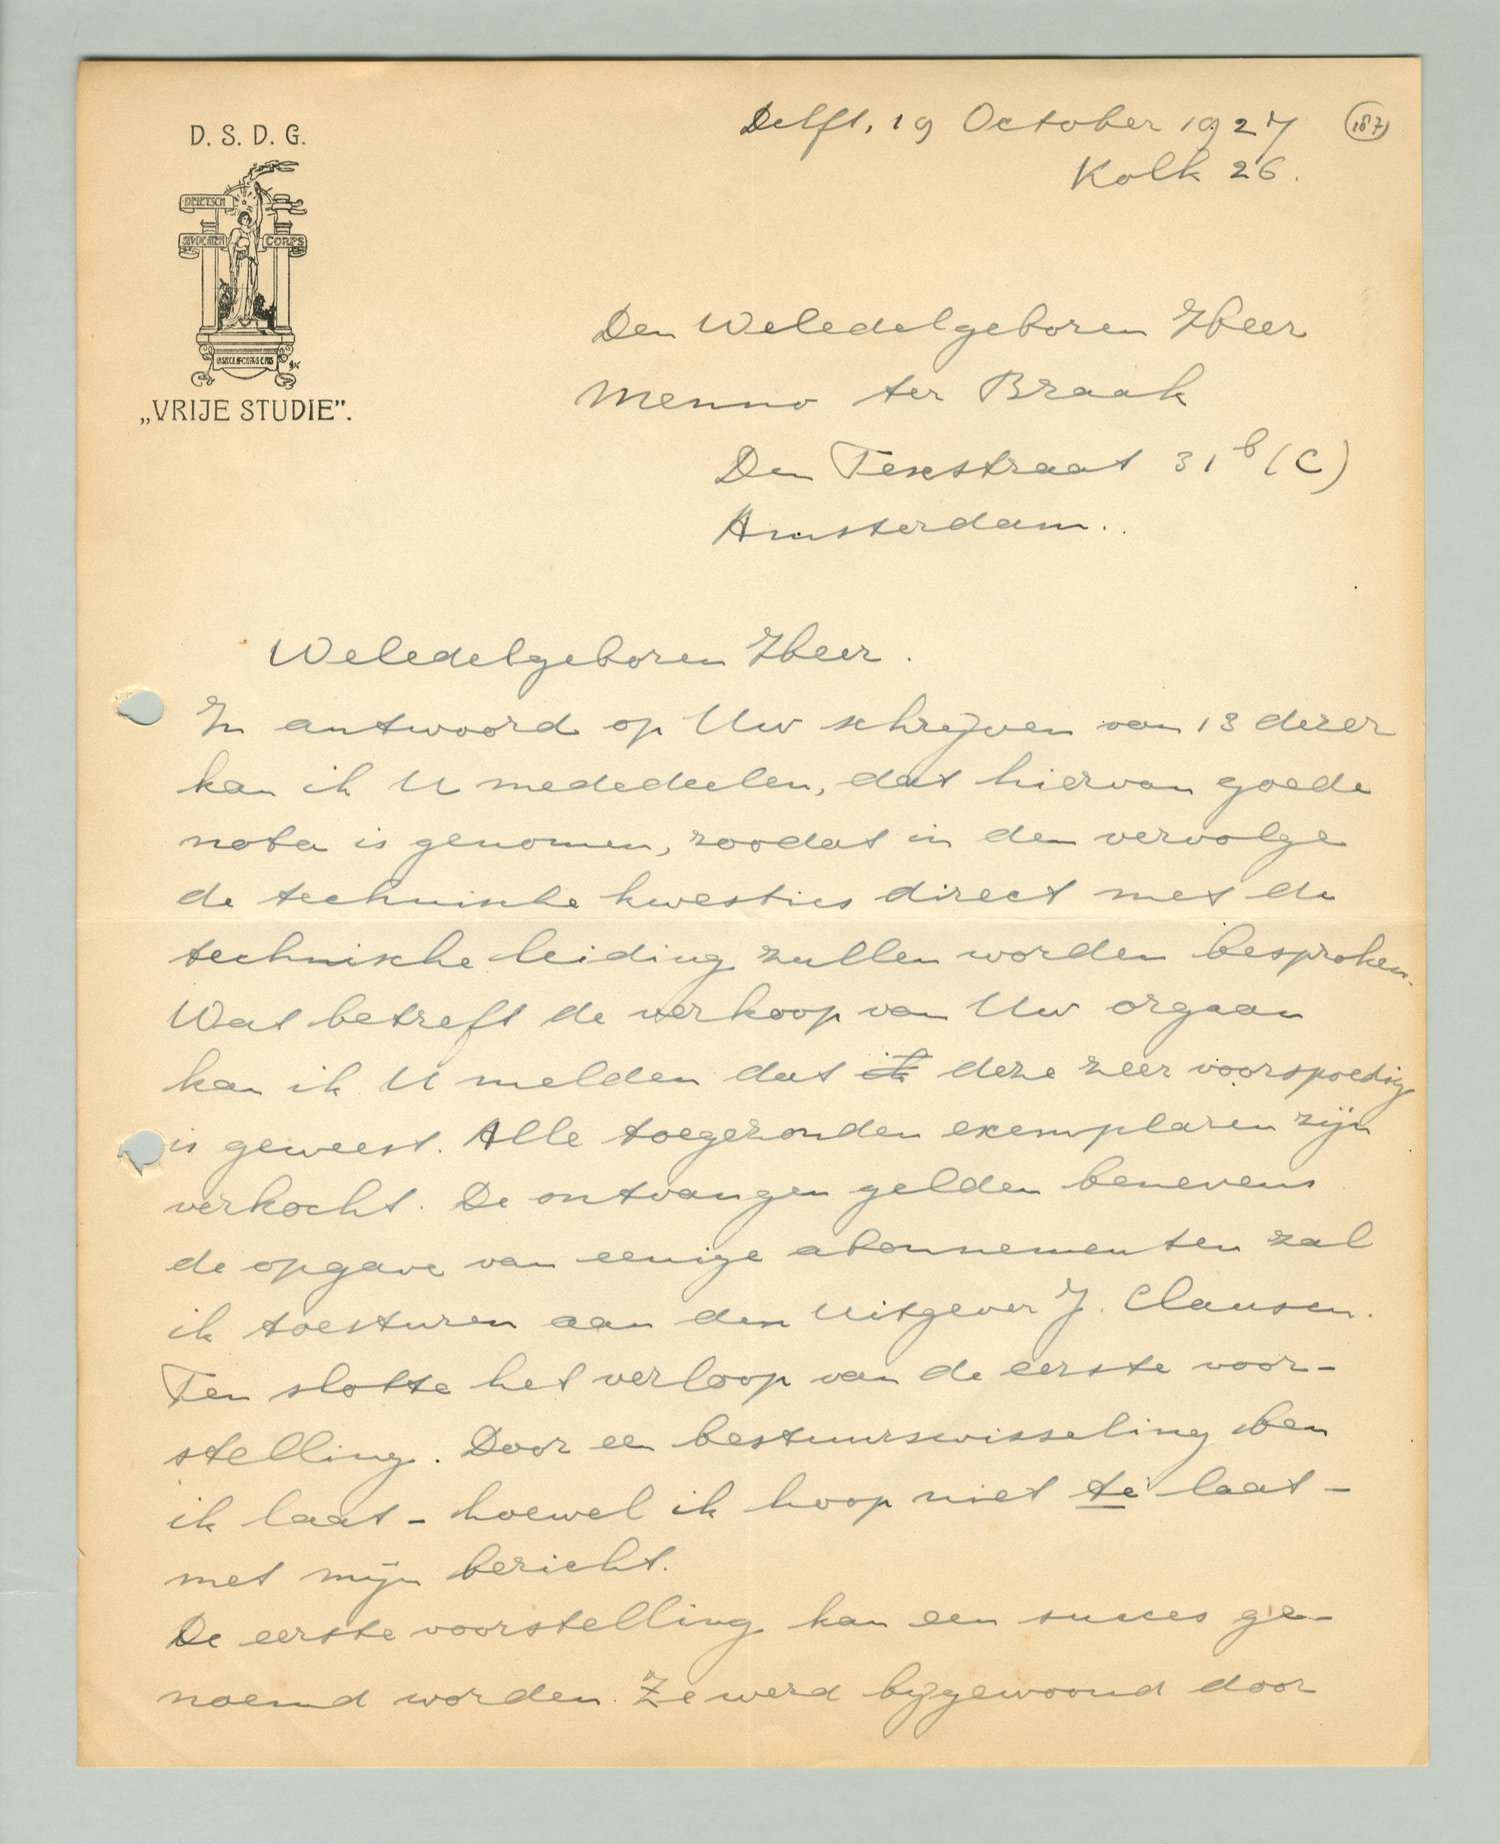 D. S. D. G.
Delft, 19 October 1927
187
Kolk 26.
DELFTSCH
STUDENTEN CORPS
„VRIJE STUDIE".
Den Weledelgeboren Heer
Menno ter Braak
Den Texstraat 31b (C)
Amsterdam.
Weledelgeboren Heer.
In antwoord op Uw schrijven van 13 dezer
kan ik U mededeelen, dat hiervan goede
nota is genomen, zoodat in den vervolge
de technische kwesties direct met de
technische leiding zullen worden besproken.
Wat betreft de verkoop van Uw orgaan
kan ik U melden dat deze zeer voorspoedig
is geweest. Alle toegezonden exemplaren zijn
verkocht. De ontvangen gelden benevens
de opgave van eenige abonnementen zal
ik toesturen aan den Uitgever J. Clausen.
Ten slotte het verloop van de eerste voor-
stelling. Door een bestuurswisseling ben
ik laat - hoewel ik hoop niet te laat -
met mijn bericht.
De eerste voorstelling kan een succes ge-
noemd worden. Ze werd bijgewoond door